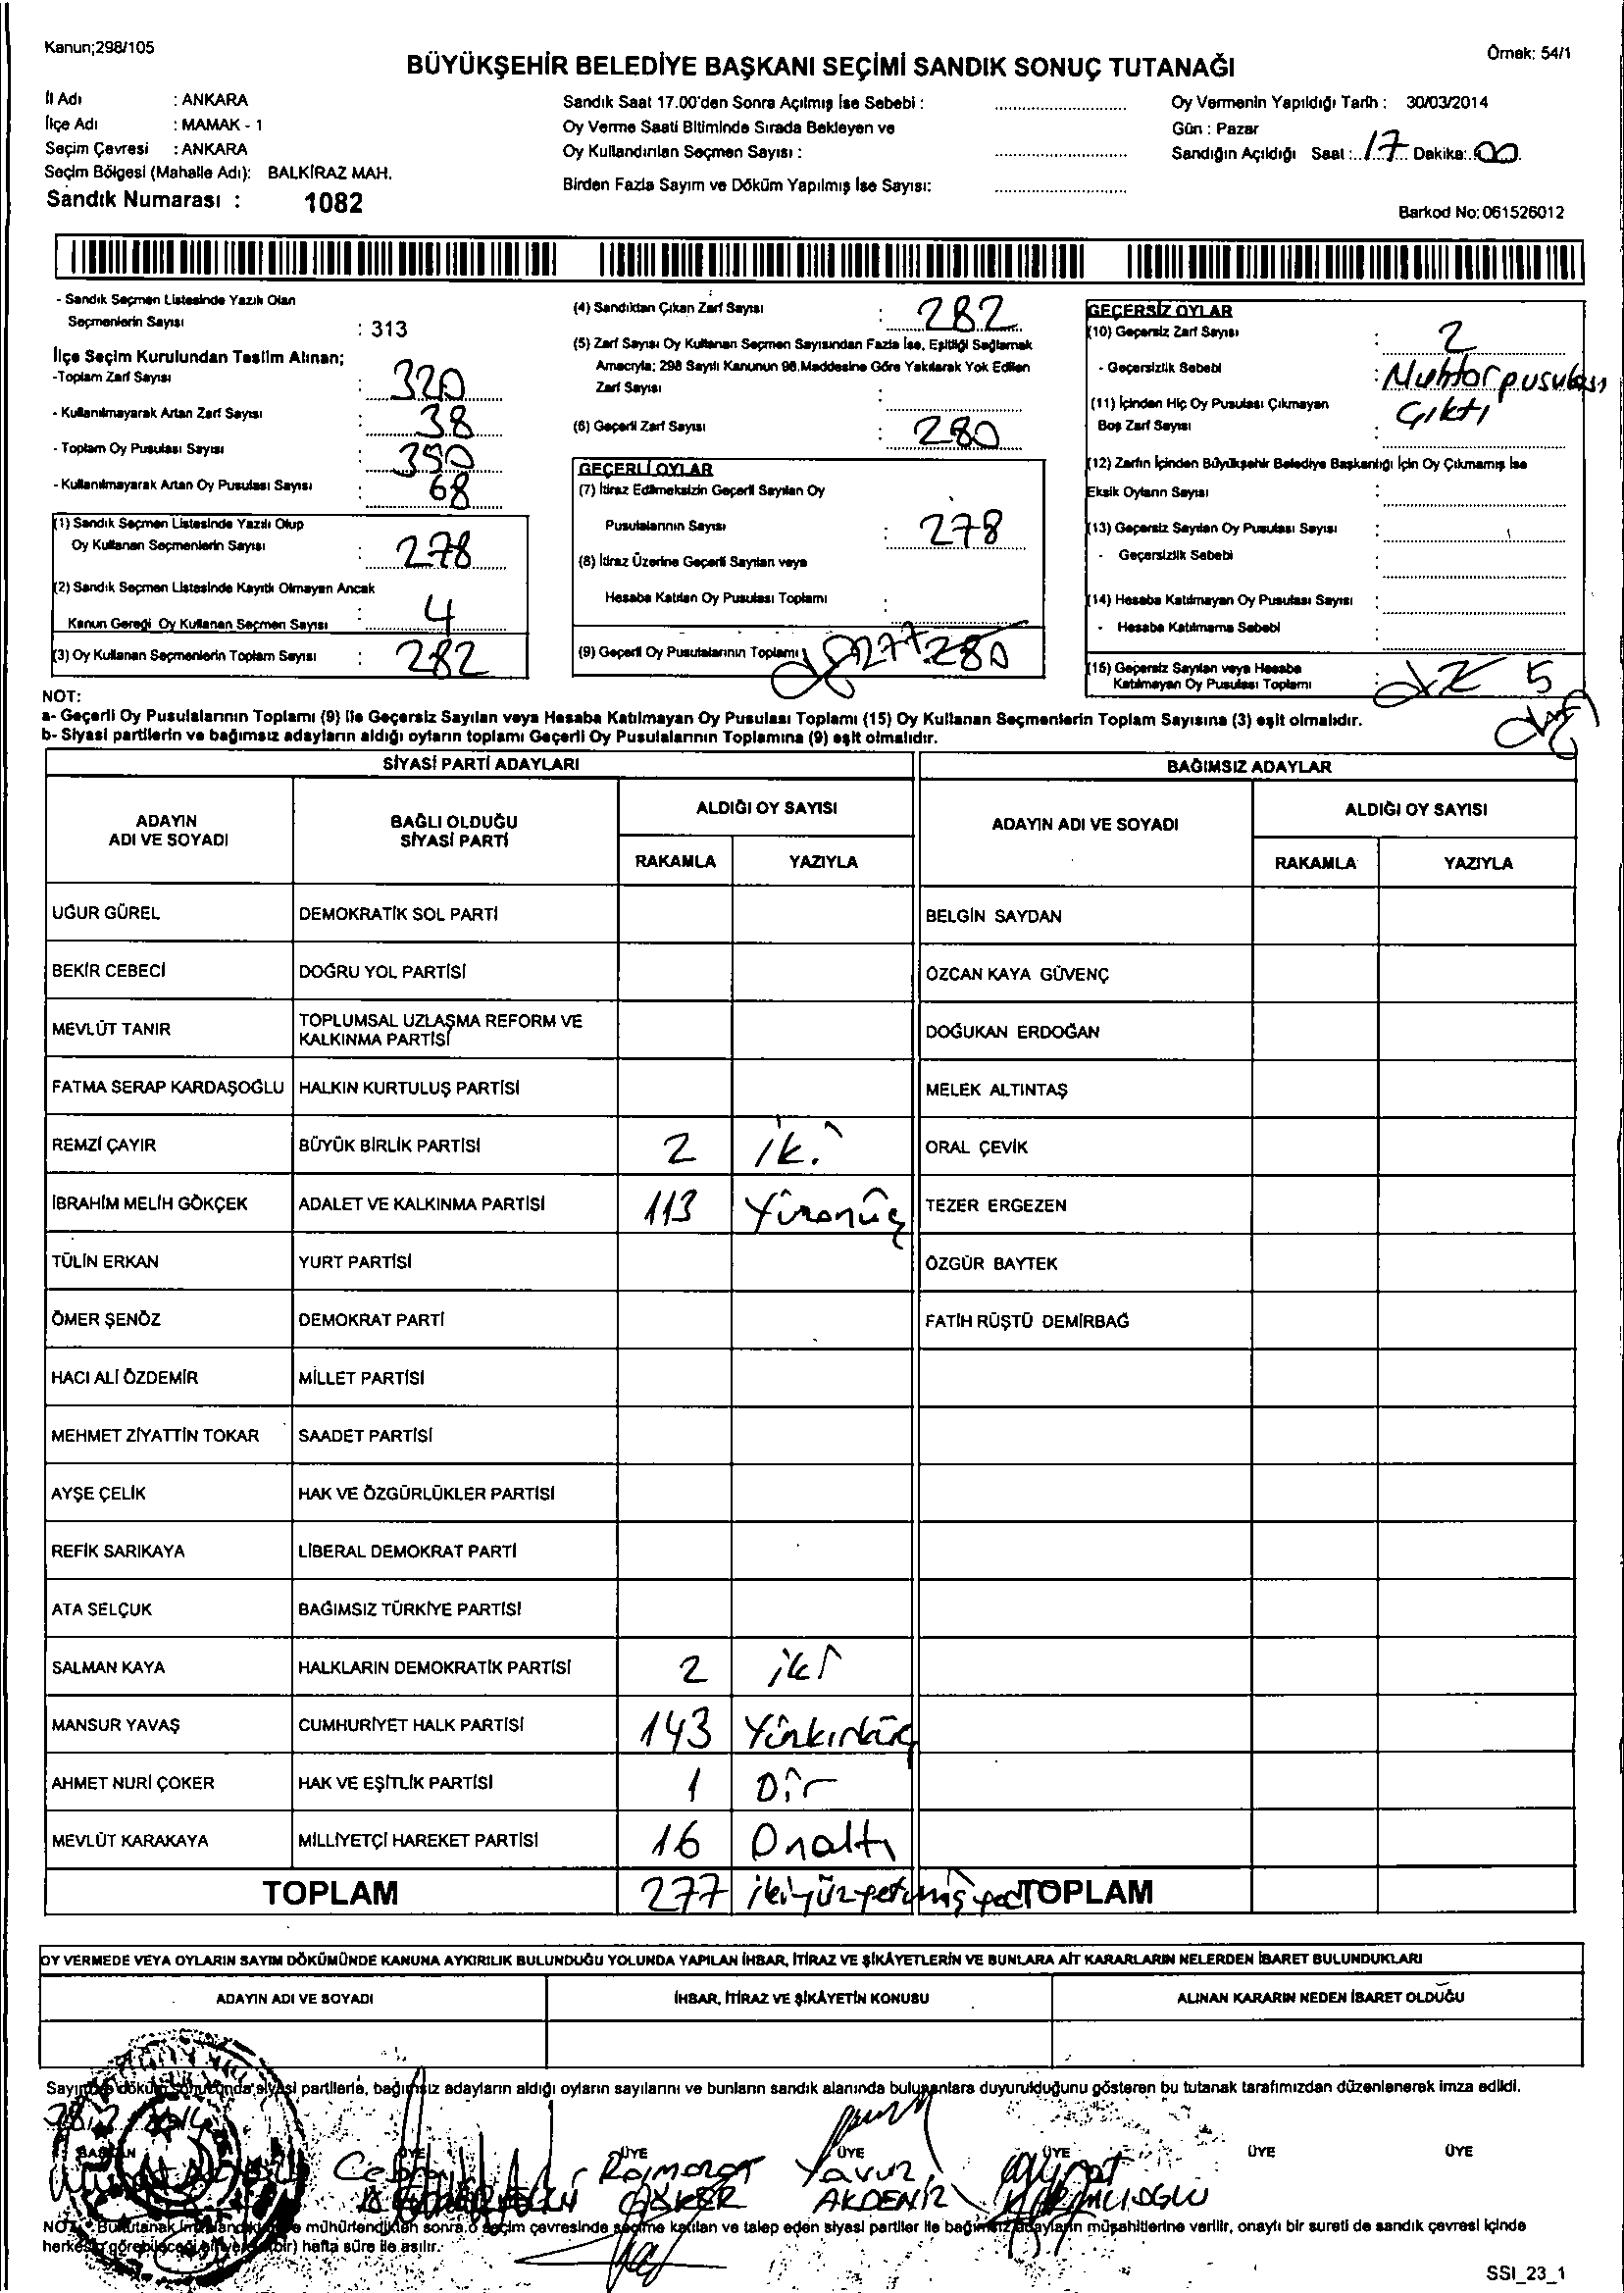 Kanun;298/105
Örnek: 54/1
BÜYÜKŞEHİR BELEDİYE BAŞKANI SEÇİMİ SANDIK SONUÇ TUTANAĞI
İl Adı : ANKARA
İlçe Adı : MAMAK - 1
Seçim Çevresi : ANKARA
Seçim Bölgesi (Mahalle Adı): BALKİRAZ MAH.
Sandık Numarası : 1082
Sandık Saat 17.00'den Sonra Açılmış İse Sebebi :
Oy Verme Saati Bitiminde Sırada Bekleyen ve
Oy Kullandırılan Seçmen Sayısı :
Birden Fazla Sayım ve Döküm Yapılmış İse Sayısı:
Oy Vermenin Yapıldığı Tarih : 30/03/2014
Gün : Pazar
Sandığın Açıldığı Saat : 17 Dakika: 00
Barkod No: 061526012
- Sandık Seçmen Listesinde Yazılı Olan
Seçmenlerin Sayısı : 313
İlçe Seçim Kurulundan Teslim Alınan;
-Toplam Zarf Sayısı : 320
- Kullanılmayarak Artan Zarf Sayısı : 38
- Toplam Oy Pusulası Sayısı : 350
- Kullanılmayarak Artan Oy Pusulası Sayısı : 68
(1) Sandık Seçmen Listesinde Yazılı Olup
Oy Kullanan Seçmenlerin Sayısı : 278
(2) Sandık Seçmen Listesinde Kayıtlı Olmayan Ancak
Kanun Gereği Oy Kullanan Seçmen Sayısı : 4
(3) Oy Kullanan Seçmenlerin Toplam Sayısı : 282
(4) Sandıktan Çıkan Zarf Sayısı : 282
(5) Zarf Sayısı Oy Kullanan Seçmen Sayısından Fazla İse, Eşitliği Sağlamak
Amacıyla; 298 Sayılı Kanunun 98.Maddesine Göre Yakılarak Yok Edilen
Zarf Sayısı :
(6) Geçerli Zarf Sayısı : 280
GEÇERLİ OYLAR
(7) İtiraz Edilmeksizin Geçerli Sayılan Oy
Pusulalarının Sayısı : 278
(8) İtiraz Üzerine Geçerli Sayılan veya
Hesaba Katılan Oy Pusulası Toplamı :
(9) Geçerli Oy Pusulalarının Toplamı 277 280
GEÇERSİZ OYLAR
(10) Geçersiz Zarf Sayısı : 2
- Geçersizlik Sebebi : Muhtar pusulası
çıktı
(11) İçinden Hiç Oy Pusulası Çıkmayan
Boş Zarf Sayısı :
(12) Zarfın İçinden Büyükşehir Belediye Başkanlığı İçin Oy Çıkmamış İse
Eksik Oyların Sayısı :
(13) Geçersiz Sayılan Oy Pusulası Sayısı :
- Geçersizlik Sebebi :
(14) Hesaba Katılmayan Oy Pusulası Sayısı :
- Hesaba Katılmama Sebebi :
(15) Geçersiz Sayılan veya Hesaba
Katılmayan Oy Pusulası Toplamı : 5
NOT:
a- Geçerli Oy Pusulalarının Toplamı (9) ile Geçersiz Sayılan veya Hesaba Katılmayan Oy Pusulası Toplamı (15) Oy Kullanan Seçmenlerin Toplam Sayısına (3) eşit olmalıdır.
b- Siyasi partilerin ve bağımsız adayların aldığı oyların toplamı Geçerli Oy Pusulalarının Toplamına (9) eşit olmalıdır.
SİYASİ PARTİ ADAYLARI
BAĞIMSIZ ADAYLAR
ADAYIN
ADI VE SOYADI
BAĞLI OLDUĞU
SİYASİ PARTİ
ALDIĞI OY SAYISI
RAKAMLA YAZIYLA
ADAYIN ADI VE SOYADI
ALDIĞI OY SAYISI
RAKAMLA YAZIYLA
UĞUR GÜREL DEMOKRATİK SOL PARTİ BELGİN SAYDAN
BEKİR CEBECİ DOĞRU YOL PARTİSİ ÖZCAN KAYA GÜVENÇ
MEVLÜT TANIR TOPLUMSAL UZLAŞMA REFORM VE
KALKINMA PARTİSİ DOĞUKAN ERDOĞAN
FATMA SERAP KARDAŞOĞLU HALKIN KURTULUŞ PARTİSİ MELEK ALTINTAŞ
REMZİ ÇAYIR BÜYÜK BİRLİK PARTİSİ 2 iki ORAL ÇEVİK
İBRAHİM MELİH GÖKÇEK ADALET VE KALKINMA PARTİSİ 113 Yüzonüç TEZER ERGEZEN
TÜLİN ERKAN YURT PARTİSİ ÖZGÜR BAYTEK
ÖMER ŞENÖZ DEMOKRAT PARTİ FATİH RÜŞTÜ DEMİRBAĞ
HACI ALİ ÖZDEMİR MİLLET PARTİSİ
MEHMET ZİYATTİN TOKAR SAADET PARTİSİ
AYŞE ÇELİK HAK VE ÖZGÜRLÜKLER PARTİSİ
REFİK SARIKAYA LİBERAL DEMOKRAT PARTİ
ATA SELÇUK BAĞIMSIZ TÜRKİYE PARTİSİ
SALMAN KAYA HALKLARIN DEMOKRATİK PARTİSİ 2 iki
MANSUR YAVAŞ CUMHURİYET HALK PARTİSİ 143 Yüzkırküç
AHMET NURİ ÇOKER HAK VE EŞİTLİK PARTİSİ 1 Bir
MEVLÜT KARAKAYA MİLLİYETÇİ HAREKET PARTİSİ 16 Onaltı
TOPLAM 277 ikiyüzyetmişyedi TOPLAM
OY VERMEDE VEYA OYLARIN SAYIM DÖKÜMÜNDE KANUNA AYKIRILIK BULUNDUĞU YOLUNDA YAPILAN İHBAR, İTİRAZ VE ŞİKÂYETLERİN VE BUNLARA AİT KARARLARIN NELERDEN İBARET BULUNDUKLARI
ADAYIN ADI VE SOYADI İHBAR, İTİRAZ VE ŞİKÂYETİN KONUSU ALINAN KARARIN NEDEN İBARET OLDUĞU
Sayım ve döküm sonucunda siyasi partilerle, bağımsız adayların aldığı oyların sayılarını ve bunların sandık alanında bulunanlara duyurulduğunu gösteren bu tutanak tarafımızdan düzenlenerek imza edildi.
BAŞKAN ÜYE ÜYE ÜYE ÜYE ÜYE ÜYE
Yavuz
AKDENİZ
NOT: Bu tutanak imzalandıktan ve mühürlendikten sonra o seçim çevresinde seçime katılan ve talep eden siyasi partiler ile bağımsız adayların müşahitlerine verilir, onaylı bir sureti de sandık çevresi içinde
herkesin görebileceği bir yerde (bir) hafta süre ile asılır.
SSI_23_1